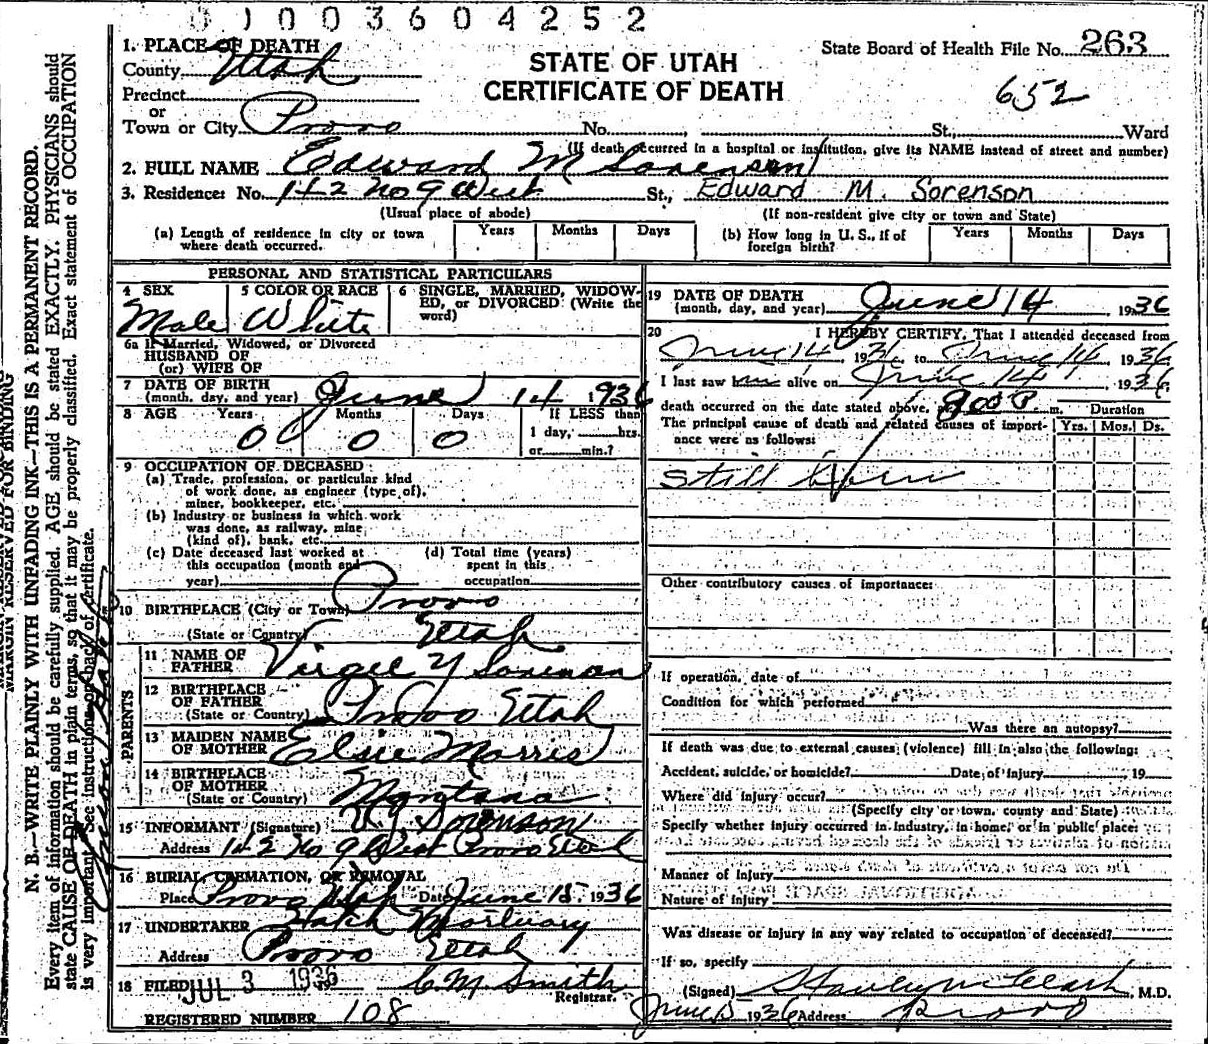 01003604252
1. PLACE OF DEATH
County Utah
Precinct
or
Town or City Provo No. , St., Ward
STATE OF UTAH
CERTIFICATE OF DEATH
State Board of Health File No. 263
652
(If death occurred in a hospital or institution, give its NAME instead of street and number)
2. FULL NAME Edward M Sorenson
3. Residence: No. 142 No 9 West St., Edward M. Sorenson
(Usual place of abode) (If non-resident give city or town and State)
(a) Length of residence in city or town where death occurred. Years Months Days
(b) How long in U. S., if of foreign birth? Years Months Days
PERSONAL AND STATISTICAL PARTICULARS
4 SEX Male
5 COLOR OR RACE White
6 SINGLE, MARRIED, WIDOWED, or DIVORCED (Write the word)
6a If Married, Widowed, or Divorced
HUSBAND OF
(or) WIFE OF
7 DATE OF BIRTH
(month, day, and year) June 14 1936
8 AGE Years Months Days If LESS than
0 0 0 1 day, hrs.
or min.?
9 OCCUPATION OF DECEASED:
(a) Trade, profession, or particular kind
of work done, as engineer (type of),
miner, bookkeeper, etc.
(b) Industry or business in which work
was done, as railway, mine
(kind of), bank, etc.
(c) Date deceased last worked at
this occupation (month and
year)
(d) Total time (years)
spent in this
occupation
10 BIRTHPLACE (City or Town) Provo
(State or Country) Utah
PARENTS
11 NAME OF
FATHER Virgil Y Sorenson
12 BIRTHPLACE
OF FATHER
(State or Country) Provo Utah
13 MAIDEN NAME
OF MOTHER Elsie Morris
14 BIRTHPLACE
OF MOTHER
(State or Country) Montana
15 INFORMANT (Signature) V Y Sorenson
Address 142 No 9 West Provo Utah
16 BURIAL, CREMATION, OR REMOVAL
Place Provo Utah Date June 15 1936
17 UNDERTAKER Hatch Mortuary
Address Provo Utah
18 FILED JUL 3 1936 C. M. Smith
Registrar.
REGISTERED NUMBER 108
19 DATE OF DEATH
(month, day, and year) June 14 1936
20 I HEREBY CERTIFY, That I attended deceased from
June 14, 1936, to June 14, 1936
I last saw alive on June 14, 1936,
death occurred on the date stated above, at 900 P. m. Duration
The principal cause of death and related causes of importance were as follows: Yrs. Mos. Ds.
Still born
Other contributory causes of importance:
If operation, date of
Condition for which performed
Was there an autopsy?
If death was due to external causes (violence) fill in also the following:
Accident, suicide, or homicide? Date of injury , 19
Where did injury occur?
(Specify city or town, county and State)
Specify whether injury occurred in industry, in home, or in public place:
Manner of Injury
Nature of Injury
Was disease or injury in any way related to occupation of deceased?
If so, specify
(Signed) Stanley M Clark, M.D.
June 15 1936 Address Provo
MARGIN RESERVED FOR BINDING
N. B.—WRITE PLAINLY WITH UNFADING INK—THIS IS A PERMANENT RECORD.
Every item of information should be carefully supplied. AGE should be stated EXACTLY. PHYSICIANS should
state CAUSE OF DEATH in plain terms, so that it may be properly classified. Exact statement of OCCUPATION
is very important. See instructions on back of certificate.